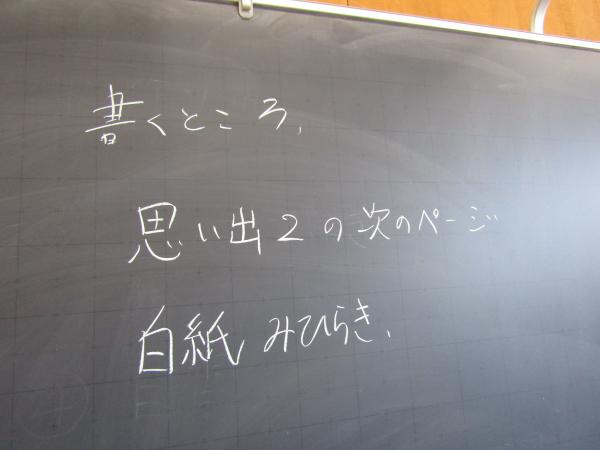 書くところ、
思い出2の次のページ
白紙 みひらき、